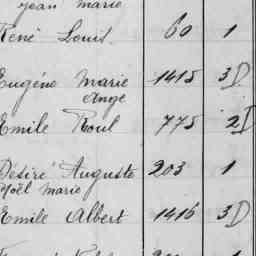 Jean Marie
René Louis. 60 1
Eugène Marie 1415 3D.
Ange
Emile Roul 775 2D
Désiré Auguste 203 1
Noël Marie
Emile Albert 1416 3D